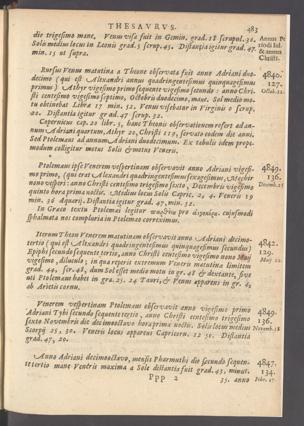 THESAVRVS. 483
die trigesimo mane, Venus visa fuit in Gemin. grad. 18 scrupul. 36.
Solo medius locus in Leonis grad. 5 scrup. 45. Distantia igitur grad. 47.
min. 15 ut supra.
Rursus Venus matutina a Theone observata fuit anno Adriani duo-
decimo (qui est Alexandri annus quadringentesimus quinquagesimus
primus) Athyr vigesimo primo sequente vigesimo secundo: anno Chri-
sti centesimo vigesimo septimo, Octobris duodecimo, mane, Sol medio mo-
tu obtinebat Libræ 17 min. 52. Venus visebatur in Virginis 0 scrup.
20. Distantia igitur grad. 47 scrup. 32.
Copernicus cap. 20 libr. 5, hanc Theonis observationem refert ad an-
num Adriani quartum, Athyr 20, Christi 119, servato eodem die anni.
Sed Ptolemæus ad annum Adriani duodecimum. Ex tabulis idem propè-
modum colligitur motus Solis & motus Veneris.
Ptolemæus ipse Venerem vespertinam observavit anno Adriani vigesi-
mo primo, (qui erat Alexandri quadringentesimus sexagesimus) Mechir
nono vesperi: anno Christi centesimo trigesimo sexto, Decembris vigesimo
quinto hora prima noctis. Medius locus Solis Capric. 2, 4. Veneris 19
min. 36 Aquarij. Distantia igitur grad. 47, min. 32.
In Græco textu Ptolemæi legitur cujusmodi
sphalmata nos complura in Ptolemæo correximus.
Iterum Theon Venerem matutinam observavit anno Adriani decimo-
tertio (qui est Alexandri quadringentesimus quinquagesimus secundus)
Epiphi secundo sequente tertio, anno Christi centesimo vigesimo nono Maij
vigesimo, diluculo; in qua reperit extremum Veneris matutinæ limitem
grad. 44, scr. 48, dum Sol esset medio motu in gr. 48 & dextante, sive
uti Ptolemæus habet in gra. 25. 24 Tauri, & Venus appareret in gr. 4,
ab Arietis cornu.
Venerem vespertinam Ptolemæus observavit anno vigesimo primo
Adriani Tybi secundo sequente tertio, anno Christi centesimo trigesimo
sexto Novembris die decimooctavo hora prima noctis. Solis locus medius
Scorpij 25, 30. Veneris locus apparens Capricorn. 12 50. Distantia
grad. 47, 20.
Anno Adriani decimooctavo, mensis Pharmuthi die secundo sequen-
te tertio mane Veneris maxima a Sole distantia fuit grad. 43, minut.
Ppp 2 35. anno
Annus Pe
riodi Iul.
& annus
Christi.
4840.
127.
Octob. 12.
4849.
136.
Decemb. 25
4842.
129.
May 20.
4849.
136.
Novemb. 18
4847.
134.
Febr. 17.